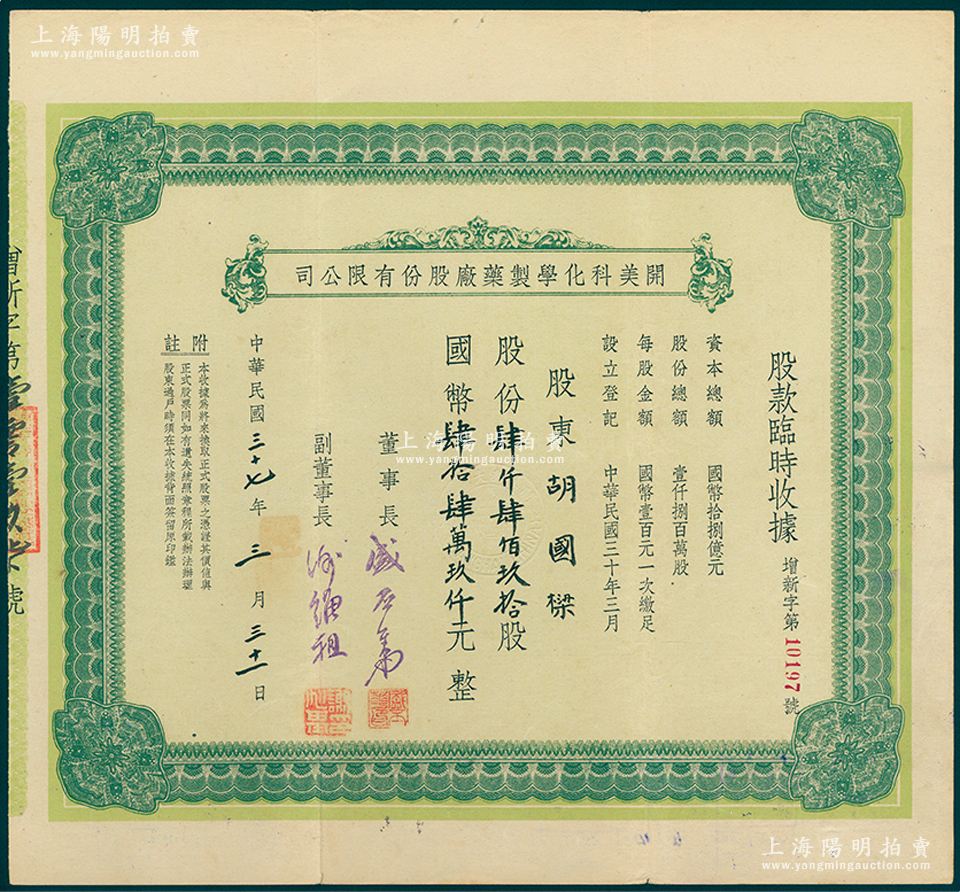 上海陽明拍賣
www.yangmingauction.com
開美科化學製藥廠股份有限公司
股款臨時收據 增新字第10197號
資本總額 國幣拾捌億元
股份總額 壹仟捌百萬股
每股金額 國幣壹百元一次繳足
設立登記 中華民國三十年三月
股東胡國樑
股份肆仟肆佰玖拾股
國幣肆拾肆萬玖仟元整
董事長
副董事長
中華民國三十七年三月三十一日
附註
本收據為將來換取正式股票之憑證其價值與
正式股票同如有遺失統照章程所載辦法辦理
股東過戶時須在本收據背面簽留原印鑑
增新字第
號
上海陽明拍賣
www.yangmingauction.com
上海陽明拍賣
www.yangmingauction.com